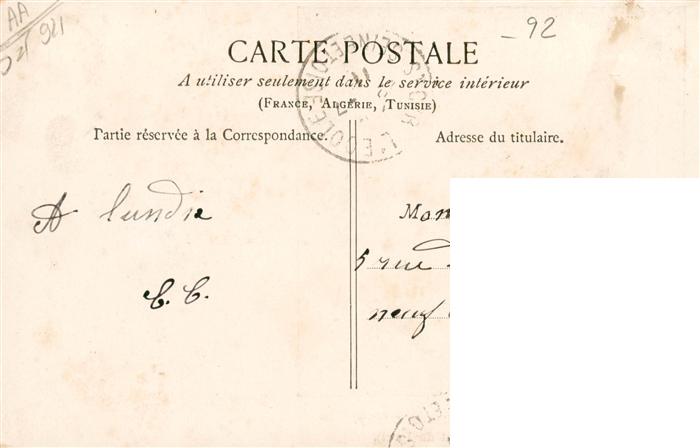 AA
921
92
CARTE POSTALE
A utiliser seulement dans le service intérieur
(FRANCE, ALGÉRIE, TUNISIE)
Partie réservée à la Correspondance.
Adresse du titulaire.
A lundi
C. C.
5 rue